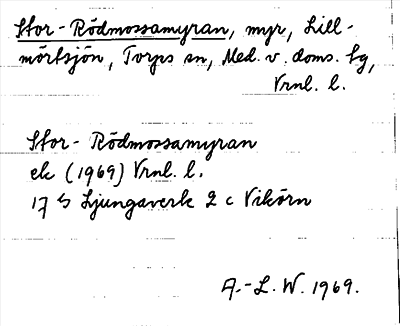 Stor-Rödmossamyran, myr, Lill-
mörtsjön, Torps sn, Med. v. doms. bg,
Vrnl. l.
Stor-Rödmossamyran
ek (1969) Vrnl. l.
17 G Ljungaverk 2 c Vikörn
A.-L. W. 1969.